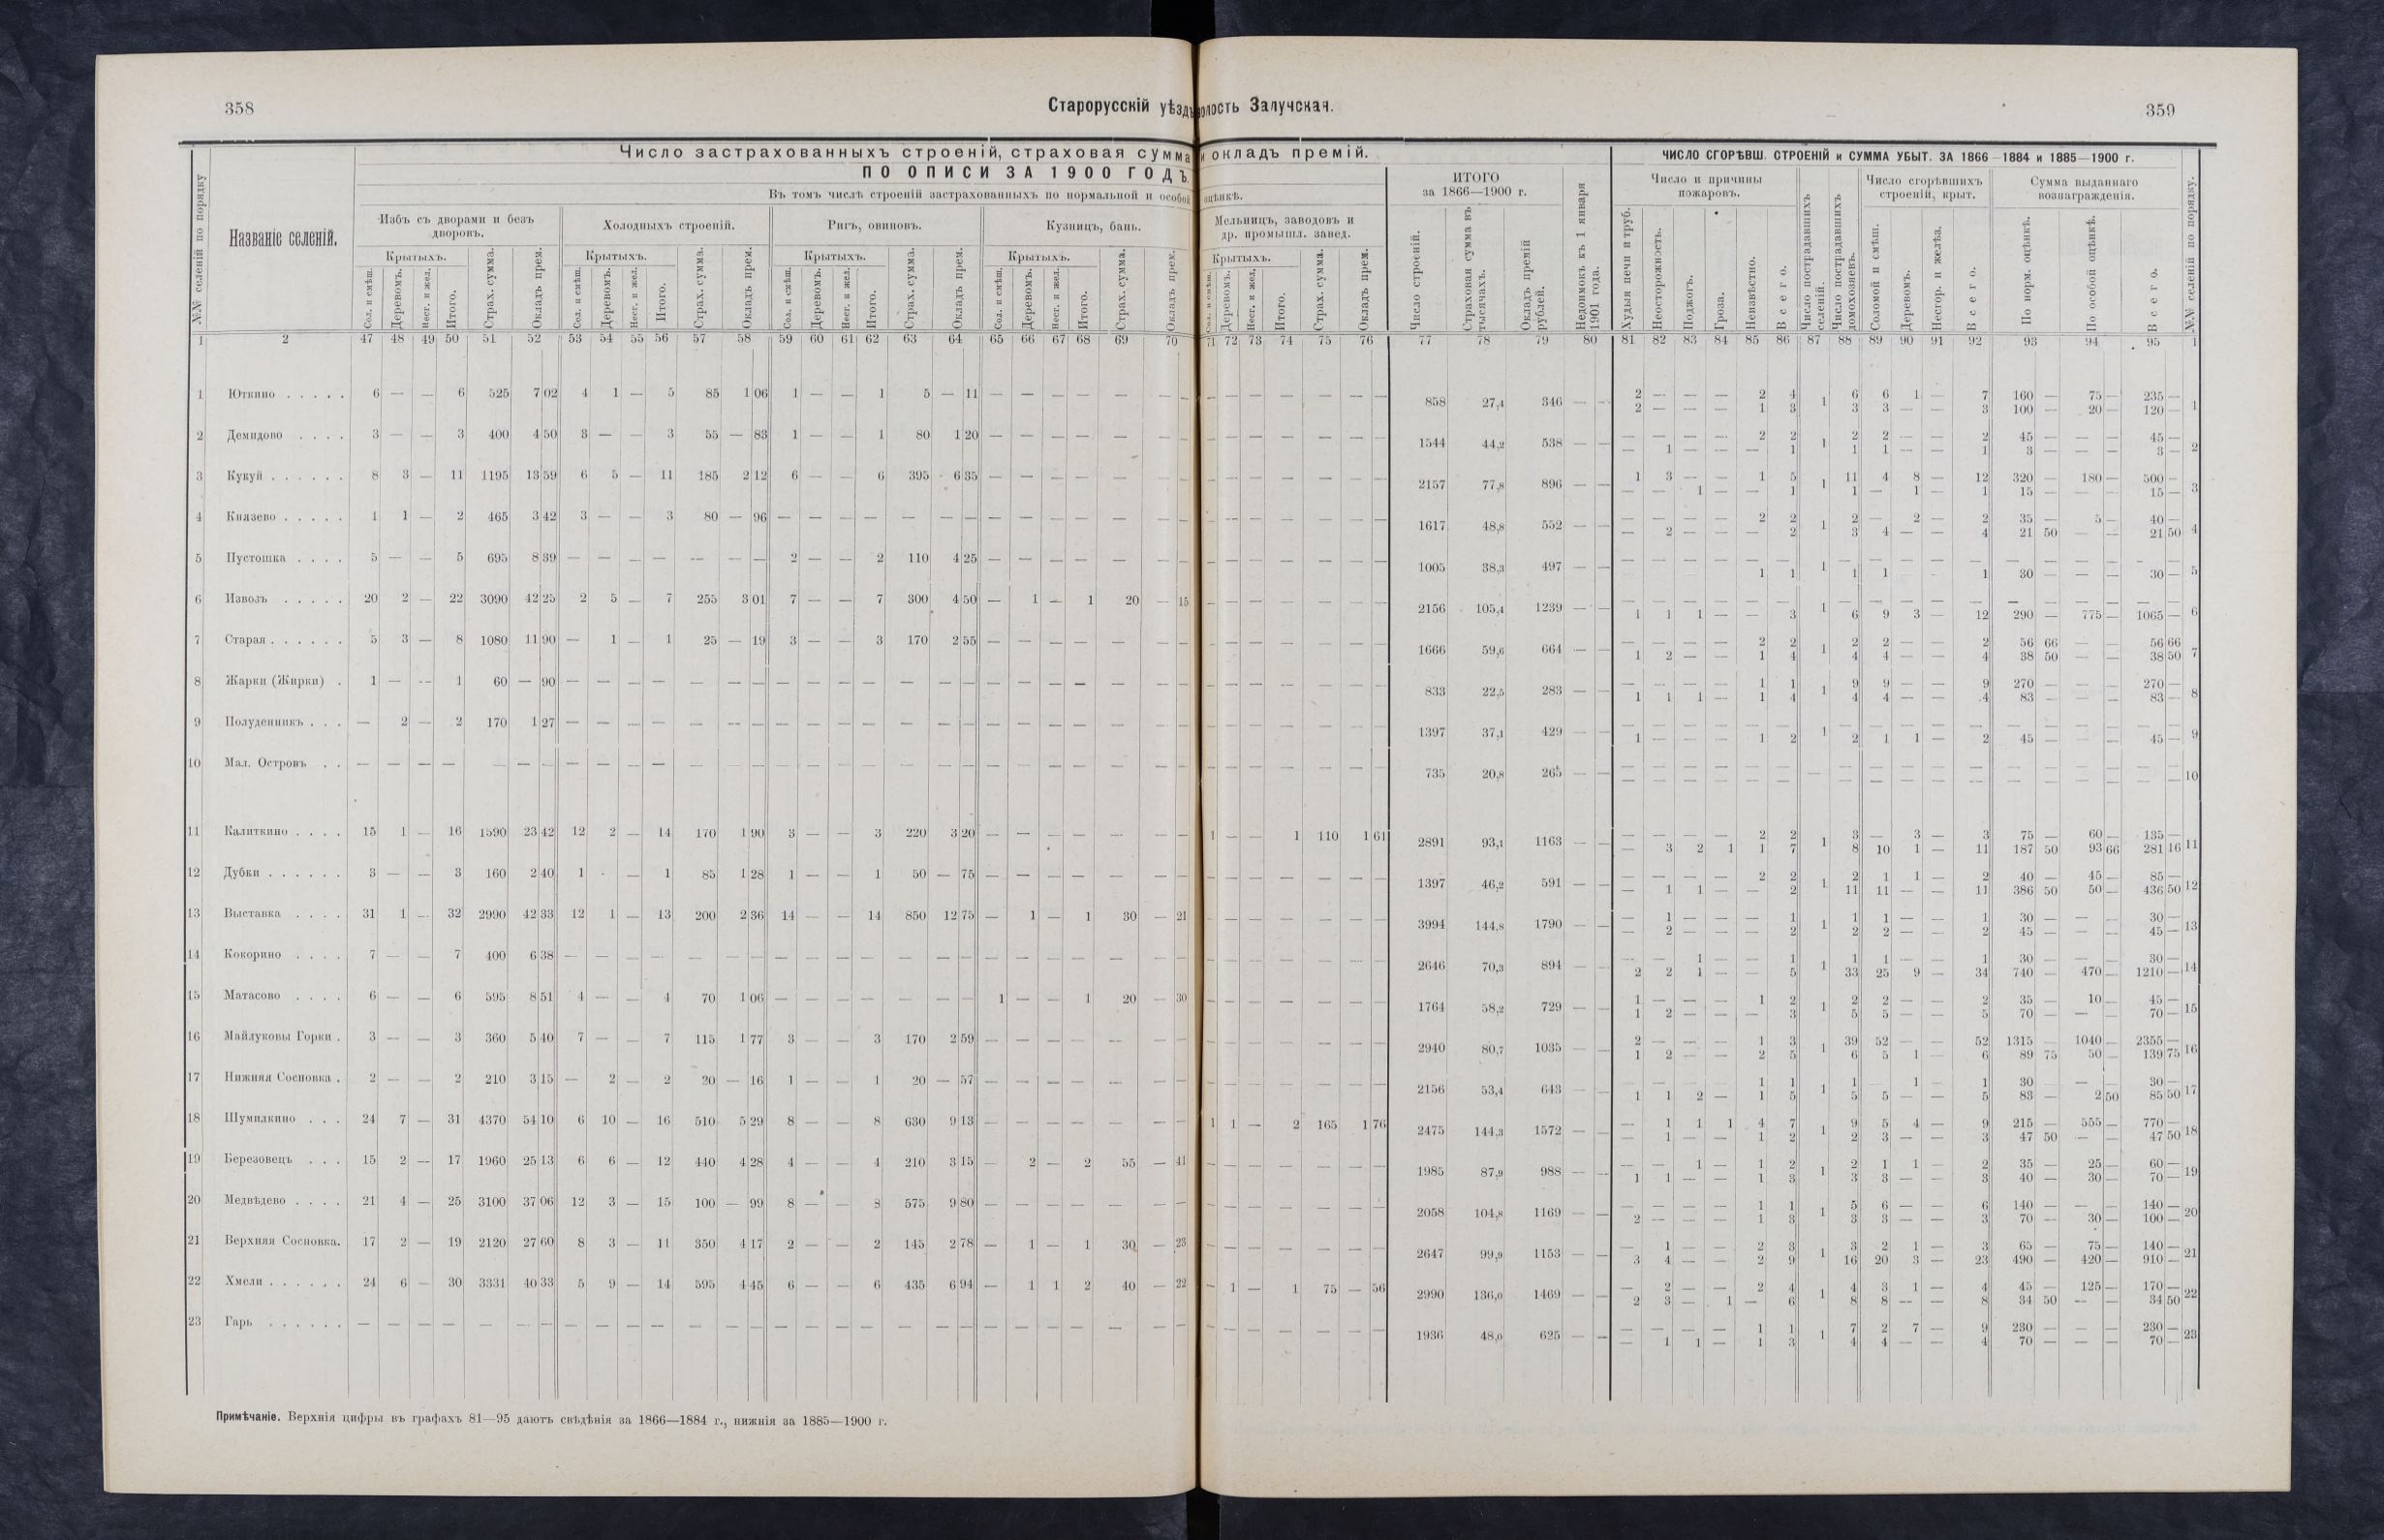 358
Старорусскій уѣздъ
волость Залучская.
359
Число застрахованныхъ строеній, страховая сумма и окладъ премій.
ЧИСЛО СГОРѢВШ. СТРОЕНІЙ и СУММА УБЫТ. ЗА 1866—1884 и 1885—1900 г.
ПО ОПИСИ ЗА 1900 ГОДЪ.
Въ томъ числѣ строеній застрахованныхъ по нормальной и особой оцѣнкѣ.
ИТОГО за 1866—1900 г.
Число и причины пожаровъ.
Число сгорѣвшихъ строеній, крыт.
Сумма выданнаго вознагражденія.
№№ селеній по порядку
Названіе селеній.
Избъ съ дворами и безъ дворовъ.
Холодныхъ строеній.
Ригъ, овиновъ.
Кузницъ, бань.
Мельницъ, заводовъ и др. промышл. завед.
Крытыхъ. Крытыхъ. Крытыхъ. Крытыхъ. Крытыхъ.
Сол. и смѣш. Деревомъ. Нест. и жел. Итого. Страх. сумма. Окладъ прем.
Сол. и смѣш. Деревомъ. Нест. и жел. Итого. Страх. сумма. Окладъ прем.
Сол. и смѣш. Деревомъ. Нест. и жел. Итого. Страх. сумма. Окладъ прем.
Сол. и смѣш. Деревомъ. Нест. и жел. Итого. Страх. сумма. Окладъ прем.
Сол. и смѣш. Деревомъ. Нест. и жел. Итого. Страх. сумма. Окладъ прем.
Число строеній. Страховая сумма въ тысячахъ. Окладъ премій рублей. Недоимокъ къ 1 января 1901 года.
Худыя печи и труб. Неосторожность. Поджогъ. Гроза. Неизвѣстно. Всего.
Число пострадавшихъ селеній. Число пострадавшихъ домохозяевъ.
Соломой и смѣш. Деревомъ. Несгор. и желѣз. Всего.
По норм. оцѣнкѣ. По особой оцѣнкѣ. Всего.
№№ селеній по порядку.
1 2 47 48 49 50 51 52 53 54 55 56 57 58 59 60 61 62 63 64 65 66 67 68 69 70 71 72 73 74 75 76 77 78 79 80 81 82 83 84 85 86 87 88 89 90 91 92 93 94 95 1
1 Юткино . . . . . 6 — — 6 525 7 02 4 1 — 5 85 1 06 1 — — 1 5 — 11 — — — — — — — — — — — — — — 858 27,4 346 — —
2 — — — 2 4 1 6 6 1 — 7 160 — 75 — 235 — 1
2 — — — 1 3 3 3 — — 3 100 — 20 — 120 —
2 Демидово . . . . 3 — — 3 400 4 50 3 — — 3 55 — 83 1 — — 1 80 1 20 — — — — — — — — — — — — — — 1544 44,2 538 — —
— — — — 2 2 1 2 2 — — 2 45 — — — 45 — 2
— 1 — — — 1 1 1 — — 1 3 — — — 3 —
3 Кукуй . . . . . . 8 3 — 11 1195 13 59 6 5 — 11 185 2 12 6 — — 6 395 6 35 — — — — — — — — — — — — — — 2157 77,8 896 — —
1 3 — — 1 5 1 11 4 8 — 12 320 — 180 — 500 — 3
— — 1 — — 1 1 — 1 — 1 15 — — — 15 —
4 Князево . . . . . 1 1 — 2 465 3 42 3 — — 3 80 — 96 — — — — — — — — — — — — — — — — — — — — — 1617 48,8 552 — —
— — — — 2 2 1 2 — 2 — 2 35 — 5 — 40 — 4
— 2 — — — 2 3 4 — — 4 21 50 — — 21 50
5 Пустошка . . . . 5 — — 5 695 8 39 — — — — — — — 2 — — 2 110 4 25 — — — — — — — — — — — — — — 1005 38,3 497 — —
— — — — — — 1 — — — — — — — — — — — 5
1 1 1 1 1 30 — — — 30 —
6 Извозъ . . . . . 20 2 — 22 3090 42 25 2 5 — 7 255 3 01 7 — — 7 300 4 50 — 1 — 1 20 — 15 — — — — — — — 2156 105,4 1239 — —
— — — — — — 1 — — — — — — — — — — — 6
1 1 1 — — 3 6 9 3 — 12 290 — 775 — 1065 —
7 Старая . . . . . . 5 3 — 8 1080 11 90 — 1 — 1 25 — 19 3 — — 3 170 2 55 — — — — — — — — — — — — — — 1666 59,6 664 — —
— — — — 2 2 1 2 2 — — 2 56 66 — — 56 66 7
1 2 — — 1 4 4 4 — — 4 38 50 — — 38 50
8 Жарки (Жирки) . 1 — — 1 60 — 90 — — — — — — — — — — — — — — — — — — — — — — — — — — — — 833 22,5 283 — —
— — — — 1 1 1 9 9 — — 9 270 — — — 270 — 8
1 1 1 — 1 4 4 4 — — 4 83 — — — 83 —
9 Полуденникъ . . . — 2 — 2 170 1 27 — — — — — — — — — — — — — — — — — — — — — — — — — — — — 1397 37,1 429 — —
— — — — — — 1 — — — — — — — — — — — 9
1 — — — 1 2 2 1 1 — 2 45 — — — 45 —
10 Мал. Островъ . . — — — — — — — — — — — — — — — — — — — — — — — — — — — — — — — — — — — 735 20,8 265 — —
— — — — — — — — — — — — — — — — — — 10
— — — — — — — — — — — — — — — — —
11 Калиткино . . . . 15 1 — 16 1590 23 42 12 2 — 14 170 1 90 3 — — 3 220 3 20 — — — — — — — 1 — — 1 110 1 61 2891 93,1 1163 — —
— — — — 2 2 1 3 — 3 — 3 75 — 60 — 135 — 11
— 3 2 1 1 7 8 10 1 — 11 187 50 93 66 281 16
12 Дубки . . . . . . 3 — — 3 160 2 40 1 - — 1 85 1 28 1 — — 1 50 — 75 — — — — — — — — — — — — — — 1397 46,2 591 — —
— — — — 2 2 1 2 1 1 — 2 40 — 45 — 85 — 12
— 1 1 — — 2 11 11 — — 11 386 50 50 — 436 50
13 Выставка . . . . 31 1 — 32 2990 42 33 12 1 — 13 200 2 36 14 — — 14 850 12 75 — 1 — 1 30 — 21 — — — — — — — 3994 144,8 1790 — —
— 1 — — — 1 1 1 1 — — 1 30 — — — 30 — 13
— 2 — — — 2 2 2 — — 2 45 — — — 45 —
14 Кокорино . . . . 7 — — 7 400 6 38 — — — — — — — — — — — — — — — — — — — — — — — — — — — — 2646 70,3 894 — —
— — 1 — — 1 1 1 1 — — 1 30 — — — 30 — 14
2 2 1 — — 5 33 25 9 — 34 740 — 470 — 1210 —
15 Матасово . . . . 6 — — 6 595 8 51 4 — — 4 70 1 06 — — — — — — — 1 — — 1 20 — 30 — — — — — — — 1764 58,2 729 — —
1 — — — 1 2 1 2 2 — — 2 35 — 10 — 45 — 15
1 2 — — — 3 5 5 — — 5 70 — — — 70 —
16 Майлуковы Горки . 3 — — 3 360 5 40 7 — — 7 115 1 77 3 — — 3 170 2 59 — — — — — — — — — — — — — — 2940 80,7 1035 — —
2 — — — 1 3 1 39 52 — — 52 1315 — 1040 — 2355 — 16
1 2 — — 2 5 6 5 1 — 6 89 75 50 — 139 75
17 Нижняя Сосновка . 2 — — 2 210 3 15 — 2 — 2 20 — 16 1 — — 1 20 — 57 — — — — — — — — — — — — — — 2156 53,4 643 — —
— — — — 1 1 1 1 — 1 — 1 30 — — — 30 — 17
1 1 2 — 1 5 5 5 — — 5 83 — 2 50 85 50
18 Шумилкино . . . 24 7 — 31 4370 54 10 6 10 — 16 510 5 29 8 — — 8 630 9 13 — — — — — — — 1 1 — 2 165 1 76 2475 144,3 1572 — —
— 1 1 1 4 7 1 9 5 4 — 9 215 — 555 — 770 — 18
— 1 — — 1 2 2 3 — — 3 47 50 — — 47 50
19 Березовецъ . . . 15 2 — 17 1960 25 13 6 6 — 12 440 4 28 4 — — 4 210 3 15 — 2 — 2 55 — 41 — — — — — — — 1985 87,9 988 — —
— — 1 — 1 2 1 2 1 1 — 2 35 — 25 — 60 — 19
1 1 — — 1 3 3 3 — — 3 40 — 30 — 70 —
20 Медвѣдево . . . . 21 4 — 25 3100 37 06 12 3 — 15 100 — 99 8 — — 8 575 9 80 — — — — — — — — — — — — — — 2058 104,8 1169 — —
— — — — 1 1 1 5 6 — — 6 140 — — — 140 — 20
2 — — — 1 3 3 3 — — 3 70 — 30 — 100 —
21 Верхняя Сосновка. 17 2 — 19 2120 27 60 8 3 — 11 350 4 17 2 — — 2 145 2 78 — 1 — 1 30 — 23 — — — — — — — 2647 99,9 1153 — —
— 1 — — 2 3 1 3 2 1 — 3 65 — 75 — 140 — 21
3 4 — — 2 9 16 20 3 — 23 490 — 420 — 910 —
22 Хмели . . . . . . 24 6 — 30 3331 40 33 5 9 — 14 595 4 45 6 — — 6 435 6 94 — 1 1 2 40 — 22 — 1 — 1 75 — 56 2990 136,0 1469 — —
— 2 — — 2 4 1 4 3 1 — 4 45 — 125 — 170 — 22
2 3 — 1 — 6 8 8 — — 8 34 50 — — 34 50
23 Гарь . . . . . . — — — — — — — — — — — — — — — — — — — — — — — — — — — — — — — — — — — 1936 48,0 625 — —
— — — — 1 1 1 7 2 7 — 9 230 — — — 230 — 23
— 1 1 — 1 3 4 4 — — 4 70 — — — 70 —
Примѣчаніе. Верхнія цифры въ графахъ 81—95 даютъ свѣдѣнія за 1866—1884 г., нижнія за 1885—1900 г.